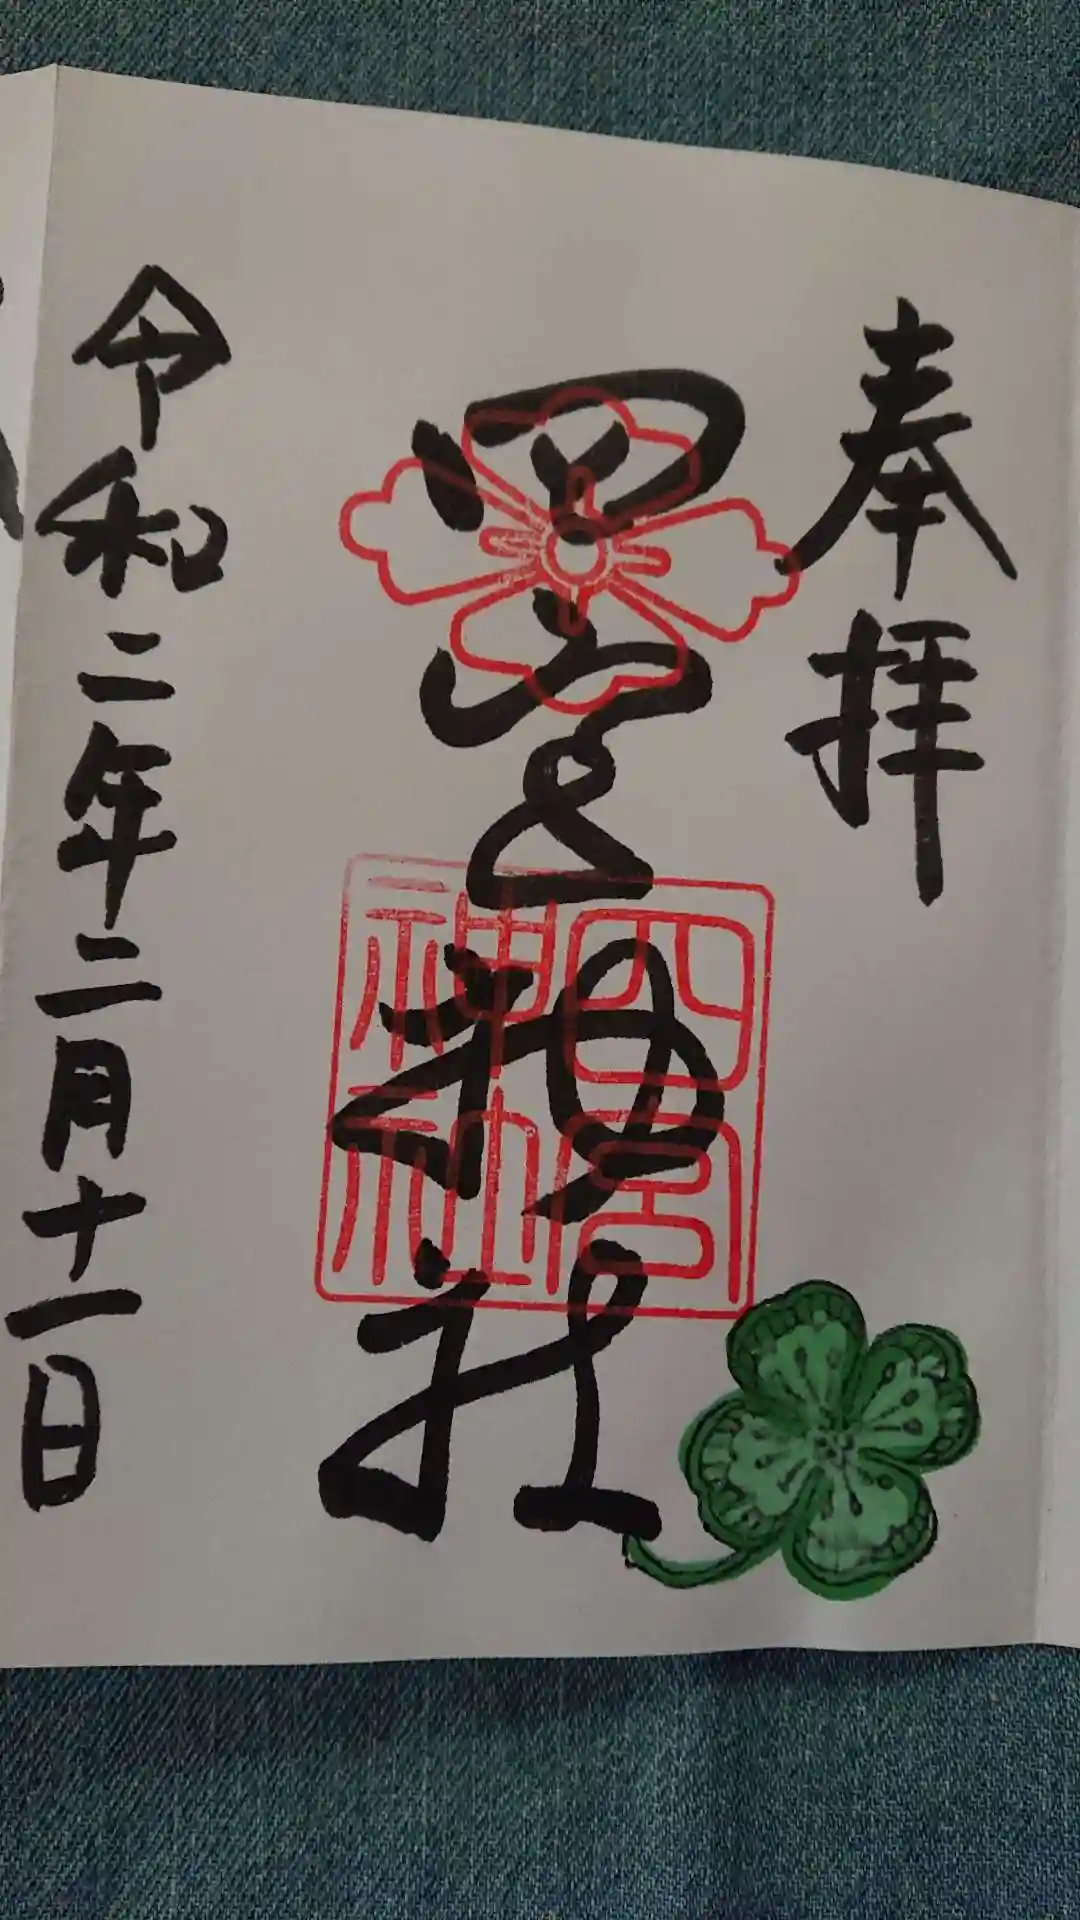 奉拝
四宮神社
四宮神社
令和二年二月十一日